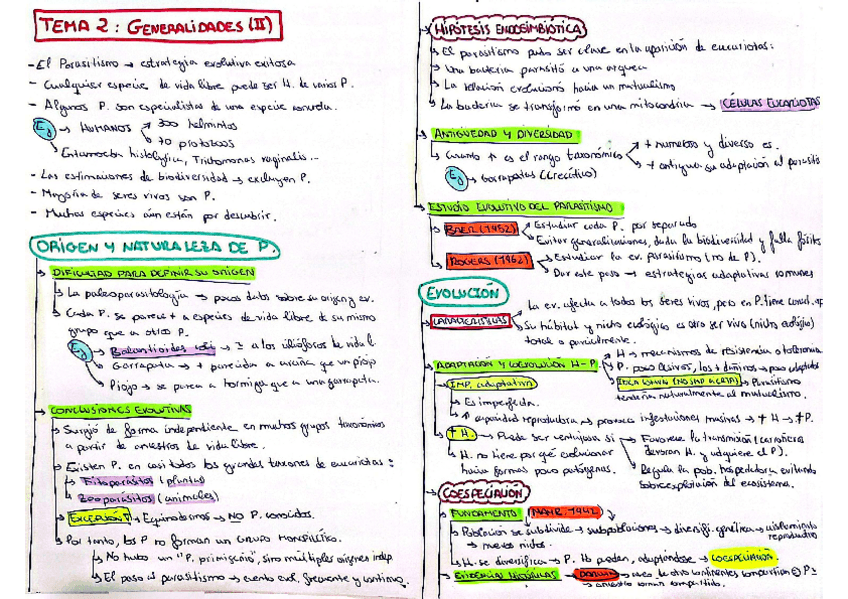 TEMA 2: GENERALIDADES (II)
- El Parasitismo → estrategia evolutiva exitosa
- Cualquier especie de vida libre puede ser H. de varios P.
- Algunos P. son especialistas de una especie concreta.
Ej → HUMANOS ↗ 300 helmintos
↘ 70 protozoos
↳ Entamoeba histolytica, Trichomonas vaginalis...
- Las estimaciones de biodiversidad → excluyen P.
- Mayoría de seres vivos son P.
- Muchas especies aún están por descubrir.
ORIGEN Y NATURALEZA DE P.
DIFICULTAD PARA DEFINIR SU ORIGEN
↳ La paleoparasitología → pocos datos sobre su origen y ev.
↳ Cada P. se parece + a especies de vida libre de su mismo
grupo que a otro P.
Ej → Balantioides coli → a los cilióforos de vida l.
↳ Garrapata → + parecida a araña que un piojo
↳ Piojo → se parece a hormiga que a una garrapata.
CONCLUSIONES EVOLUTIVAS
↳ Surgió de forma independiente en muchos grupos taxonómicos
a partir de ancestros de vida libre.
↳ Existen P. en casi todos los grandes taxones de eucariotas:
↳ Fitoparásitos (plantas)
↳ Zooparásitos (animales)
↳ EXCEPCIÓN → Equinodermos → NO P. conocidos.
↳ Por tanto, los P no forman un GRUPO MONOFILÉTICO.
↳ No hubo un "P. primigenio", sino múltiples orígenes indep.
↳ El paso al parasitismo → evento evol. frecuente y continuo.
HIPÓTESIS ENDOSIMBIÓTICA
↳ El parasitismo pudo ser clave en la aparición de eucariotas:
↳ Una bacteria parasitó a una arquea
↳ La relación evolucionó hacia un mutualismo
↳ La bacteria se transformó en una mitocondria → CÉLULAS EUCARIOTAS
ANTIGÜEDAD Y DIVERSIDAD
↳ Cuanto ↑ es el rango taxonómico ↗ + numeroso y diverso es.
↘ + antigua su adaptación al parasito
Ej → Garrapatas (Cretácico)
ESTUDIO EVOLUTIVO DEL PARASITISMO
↳ BAER (1952) ↗ Estudiar cada P. por separado
↘ Evitar generalizaciones, dada la biodiversidad y falta fósiles
↳ ROGERS (1962) ↗ Estudiar la ev. parasitismo (no de P.).
↘ Dar este paso → estrategias adaptativas comunes
EVOLUCIÓN
CARACTERÍSTICAS ↗ La ev. afecta a todos los seres vivos, pero en P. tiene
↘ Su hábitat y nicho ecológico es otro ser vivo (nicho ecológico)
total o parcialmente.
ADAPTACIÓN Y COEVOLUCIÓN H-P. ↗ H → mecanismos de resistencia o tolerancia
→ P. poco lesivos, los + dañinos → poco adaptados
↘ → Parasitismo
tendría naturalmente al mutualismo.
IMP. adaptativa
↳ Es imperfecta.
↳ ↑ capacidad reproductora → provoca infestaciones masivas → † H → † P.
† H. → Puede ser ventajosa si ↗ Favorece la transmisión (carnívoros
devoran H. y adquiere el P.).
↘ Regula la pob. hospedadora evitando
sobreexplotación del ecosistema.
↳ H. no tiene por qué evolucionar
hacia formas poco patógenas.
COESPECIACIÓN
↳ FUNDAMENTO (MAYR, 1942)
↳ Población se subdivide → subpoblaciones → diversif. genética → aislamiento
reproductivo
→ nuevos nichos.
↳ H. se diversifica → P. lo pueden, adaptándose → COESPECIACIÓN.
↳ EVIDENCIAS HISTÓRICAS → DARWIN → aves de otro continentes compartían P
→ ancestro común compartido.